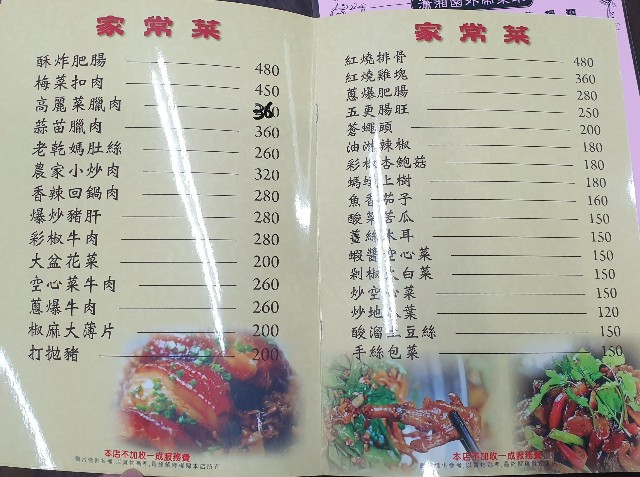 家常菜
酥炸肥腸 480
梅菜扣肉 450
高麗菜臘肉 360
蒜苗臘肉 360
老乾媽肚絲 260
農家小炒肉 320
香辣回鍋肉 280
爆炒豬肝 280
彩椒牛肉 280
大盆花菜 200
空心菜牛肉 260
蔥爆牛肉 260
椒麻大薄片 200
打拋豬 200
本店不加收一成服務費
家常菜
紅燒排骨 480
紅燒雞塊 360
蔥爆肥腸 280
五更腸旺 250
蒼蠅頭 200
油淋辣椒 180
彩椒杏鮑菇 180
螞蟻上樹 180
魚香茄子 160
酸菜苦瓜 150
薑絲木耳 150
蝦醬空心菜 150
剁椒大白菜 150
炒空心菜 150
炒地瓜葉 120
酸溜土豆絲 150
手絲包菜 150
本店不加收一成服務費